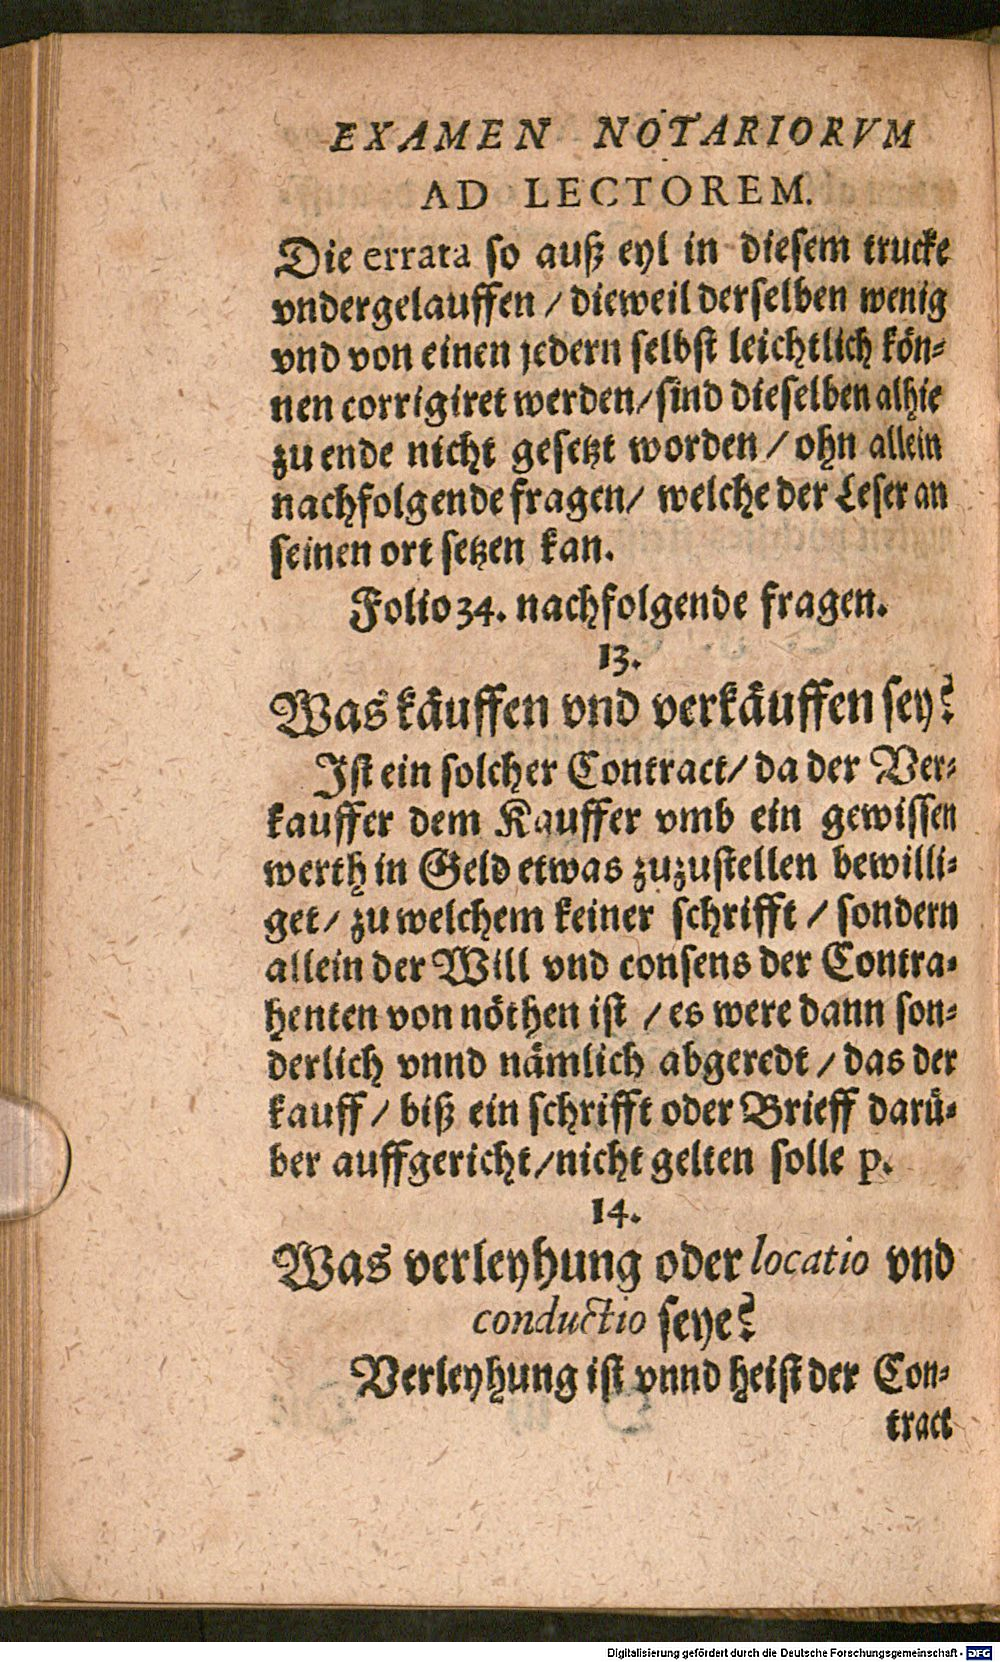 EXAMEN NOTARIORVM
AD LECTOREM.
Die errata so auß eyl in diesem trucke
vndergelauffen / dieweil derselben wenig
vnd von einen jedern selbst leichtlich kön-
nen corrigiret werden / sind dieselben alhie
zu ende nicht gesetzt worden / ohn allein
nachfolgende fragen / welche der Leser an
seinen ort setzen kan.
Folio 34. nachfolgende fragen.
13.
Was käuffen vnd verkäuffen sey?
Ist ein solcher Contract / da der Ver-
kauffer dem Kauffer vmb ein gewissen
werth in Geld etwas zuzustellen bewilli-
get / zu welchem keiner schrifft / sondern
allein der Will vnd consens der Contra-
henten von nöthen ist / es were dann son-
derlich vnnd nämlich abgeredt / das der
kauff / biß ein schrifft oder Brieff darü-
ber auffgericht / nicht gelten solle p.
14.
Was verleyhung oder locatio vnd
conductio seye?
Verleyhung ist vnnd heist der Con-
tract
Digitalisierung gefördert durch die Deutsche Forschungsgemeinschaft - DFG